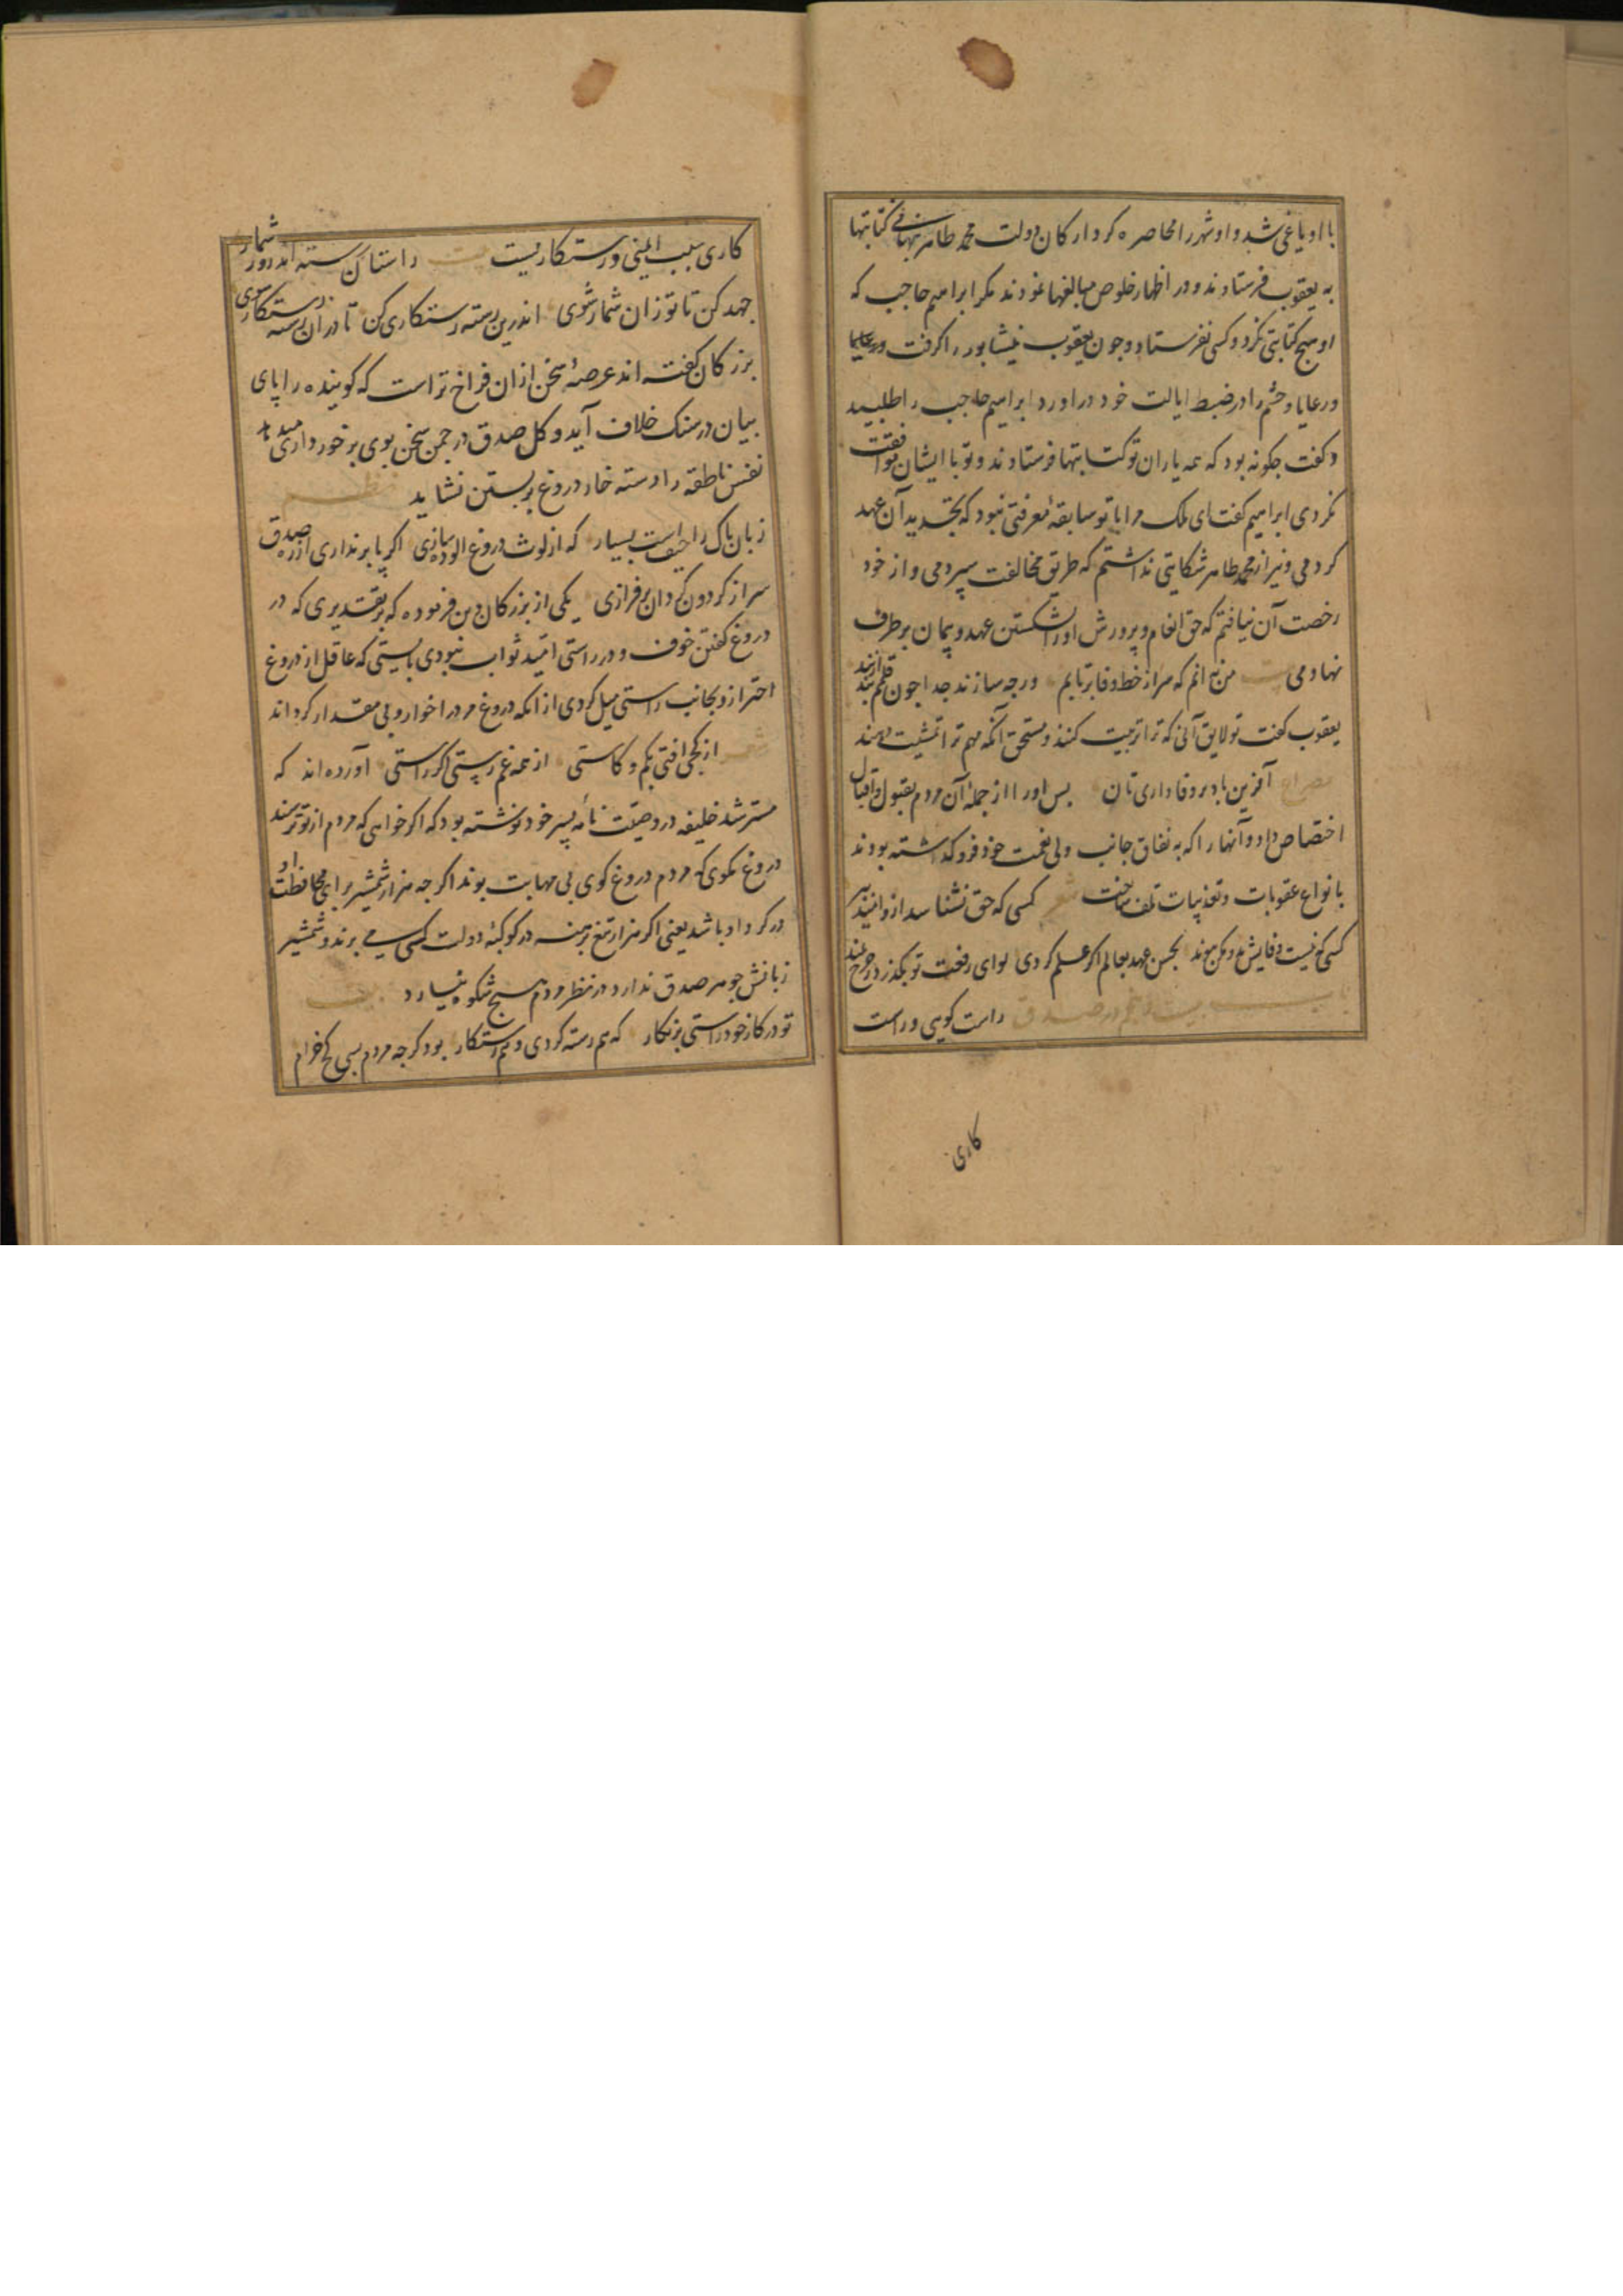 با او یاغی شد و او شهر را محاصره کرد ارکان دولت محمد طاهر نهانی کتابتها
به یعقوب فرستادند و در اظهار خلوص مبالغها نمودند مکر ابراهیم حاجب که
او هیچ کتابتی نکرد و کسی نفرستاد و چون یعقوب نیشابور را کرفت
و رعایا و حشم را در ضبط ایالت خود دراورد ابراهیم حاجب را طلبید
و کفت چکونه بود که همه یاران تو کتابتها فرستادند و تو با ایشان موافقت
نکردی ابراهیم کفت ای ملک مرا با تو سابقهٔ معرفتی نبود که بتجدید آن عهد
کردمی و نیز از محمد طاهر شکایتی نداشتم که طریق مخالفت سپردمی و از خود
رخصت آن نیافتم که حق انعام و پرورش او را بشکستن عهد و پیمان بر طرف
نهادمی بیت من نه انم که سر از خط وفا برتابم ورچه سازند جدا چون قلمم بند از بند
یعقوب کفت تو لایق آنی که ترا تربیت کنند و مستحق آنکه مهم ترا تمشیت دهند
مصراع آفرین باد بر وفاداری تان پس او را از جملهٔ آن مردم بقبول و اقبال
اختصاص داد و آنها را که به نفاق جانب ولی نعمت خود فرو کذاشته بودند
با نواع عقوبات و تعذیبات تلف ساخت شعر کسی که حق نشناسد ازو
کسی کو نیست وفایش بدو مکن پیوند بحسن عهد بعالم اکر علم کردی لوای رفعت تو بکذرد ز چرخ بلند
باب بیست و پنجم در صدق راست کویی و راست
کاری
کاری سبب ایمنی و رستکاریست بیت راستان رسته اند روز شمار
جهد کن تا تو زان شمار شوی اندرین رسته رستکاری کن تا دران رسته رستکار شوی
بزرکان کفته اند عرصهٔ سخن ازان فراخ تر است که کوینده را پای
بیان در سنک خلاف آید و کل صدق در چمن سخن بوی برخورداری میدهد
نفس ناطقه را دسته خار دروغ بر بستن نشاید نظم
زبان پاک را حیف است بسیار که از لوث دروغ الوده سازی اکر پا بر نداری از ره صدق
سر از کردون کردان برفرازی یکی از بزرکان دین فرموده که بر تقدیری که در
دروغ کفتن خوف و در راستی امید ثواب نبودی بایستی که عاقل از دروغ
احتراز و بجانب راستی میل کردی از انکه دروغ مرد را خوار و بی مقدار کرداند
شعر از کجی افتی بکم و کاستی از همه غم رستی اکر راستی آورده اند که
مسترشد خلیفه در وصیت نامه پسر خود نوشته بود که اکر خواهی که مردم از تو ترسند
دروغ مکوی که مردم دروغ کوی بی مهابت بوند اکرچه هزار شمشیر برای محافظت او
در کرد او باشد یعنی اکر هزار تیغ برهنه در کوکبهٔ دولت کسی می برند و شمشیر
زبانش جوهر صدق ندارد در نظر مردم هیچ شکوه نیارد بیت
تو در کار خود راستی بر نکار که هم رسته کردی و هم رستکار بود کرچه مردم بسی کج خرام